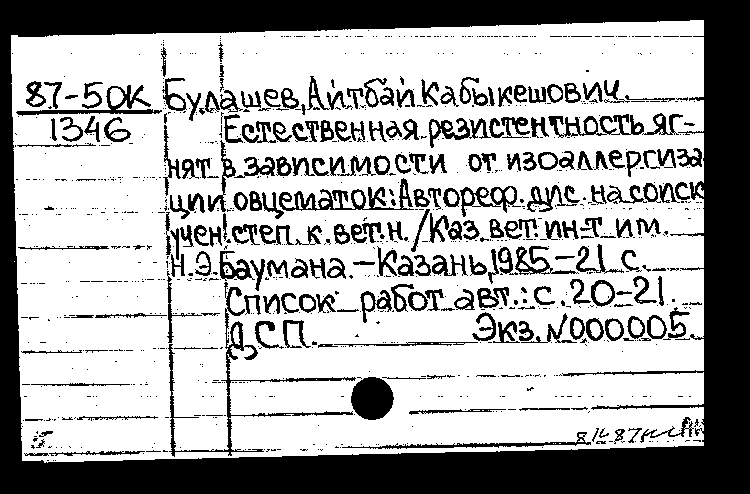 87-5ОК Булашев, Айтбай Кабыкешович.
1346 Естественная резистентность яг-
нят в зависимости от изоаллергиза
ции овцематок: Автореф. дис. на соиск
учен. степ. к. вет. н. / Каз. вет. ин-т им.
Н. Э. Баумана. - Казань, 1985 - 21 с.
Список работ авт.: с. 20-21.
ДСП. Экз. N000005.
5